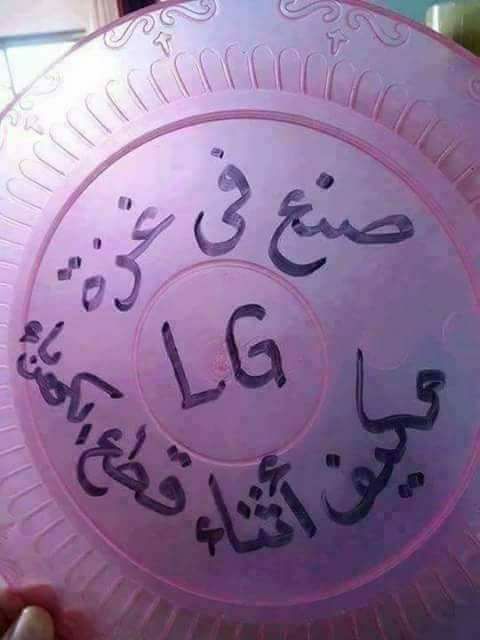 صنع في غزة
LG
مكيف أثناء قطع الكهرباء